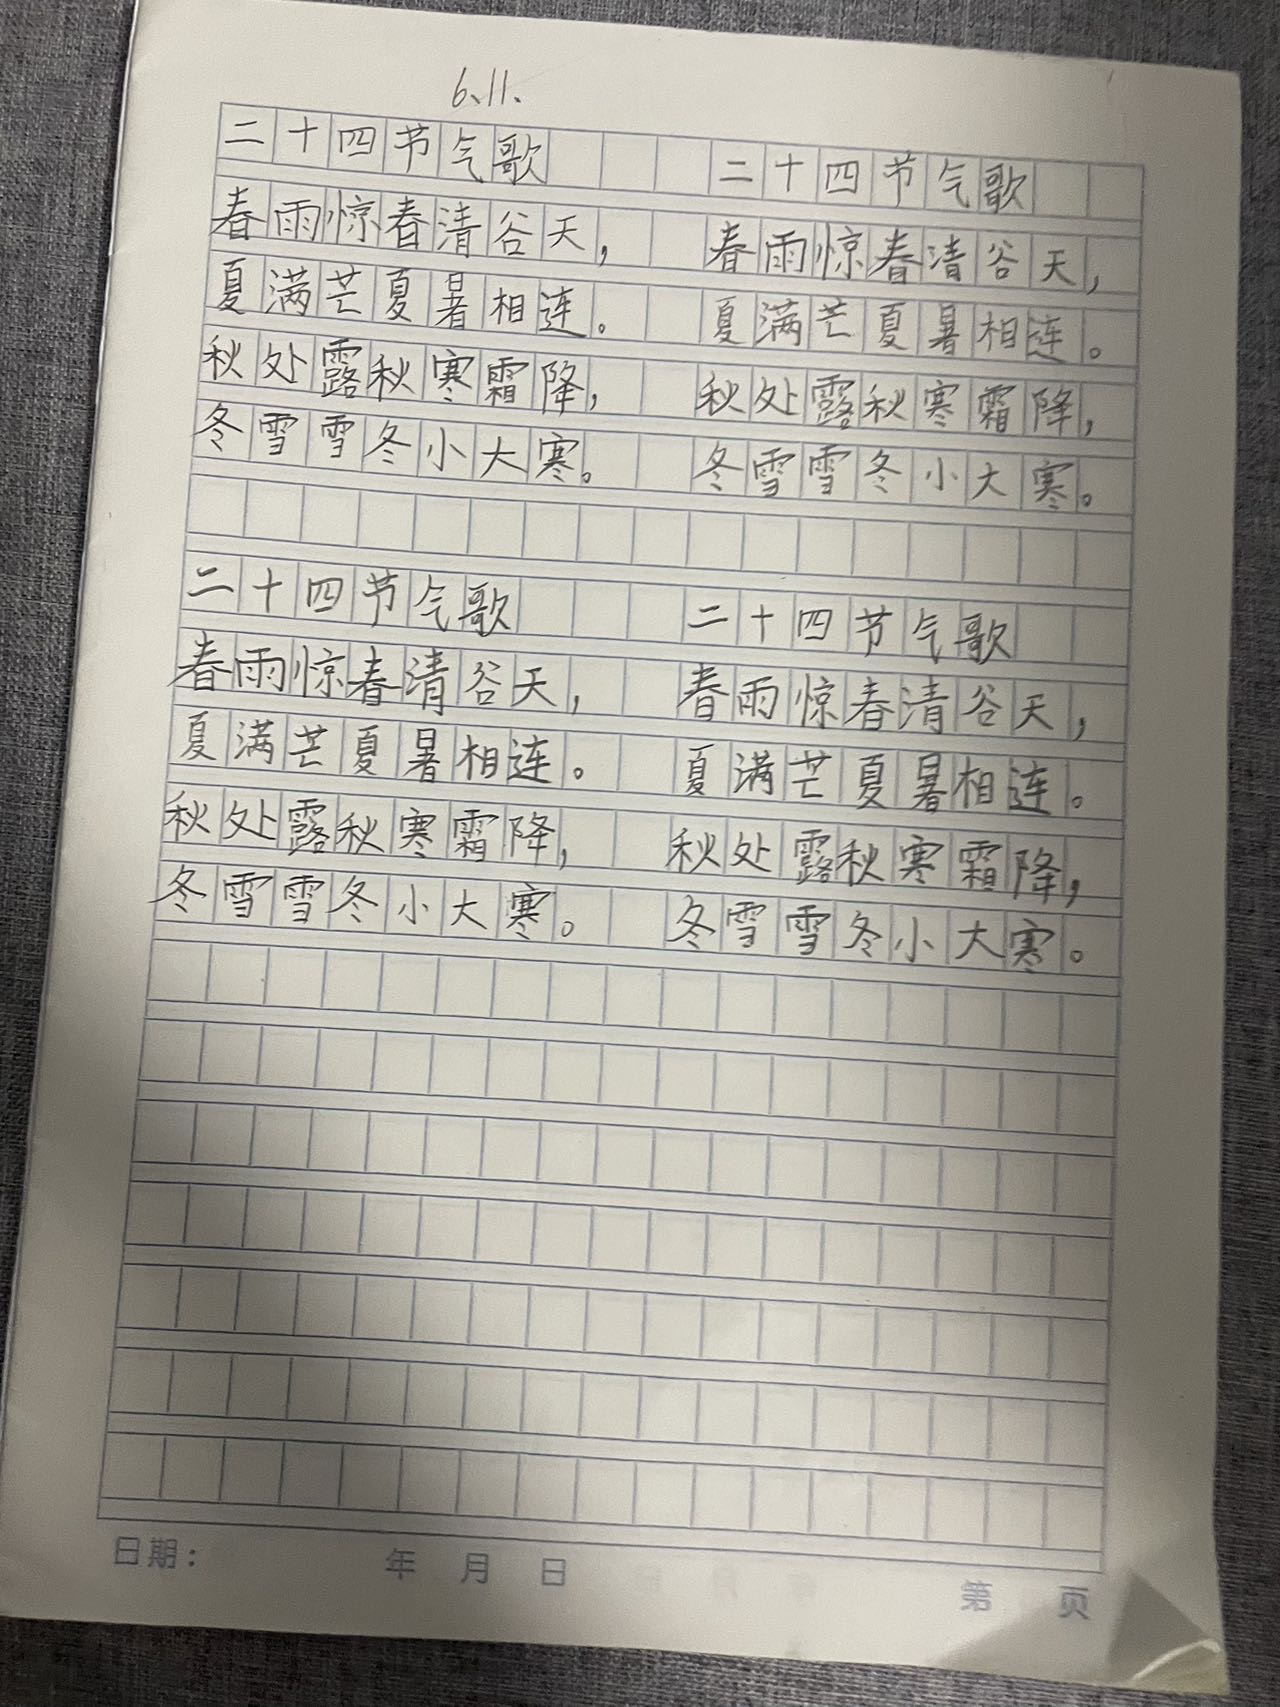 6.11.
二十四节气歌 二十四节气歌
春雨惊春清谷天， 春雨惊春清谷天，
夏满芒夏暑相连。 夏满芒夏暑相连。
秋处露秋寒霜降， 秋处露秋寒霜降，
冬雪雪冬小大寒。 冬雪雪冬小大寒。
二十四节气歌 二十四节气歌
春雨惊春清谷天， 春雨惊春清谷天，
夏满芒夏暑相连。 夏满芒夏暑相连。
秋处露秋寒霜降， 秋处露秋寒霜降，
冬雪雪冬小大寒。 冬雪雪冬小大寒。
日期： 年 月 日 第 页